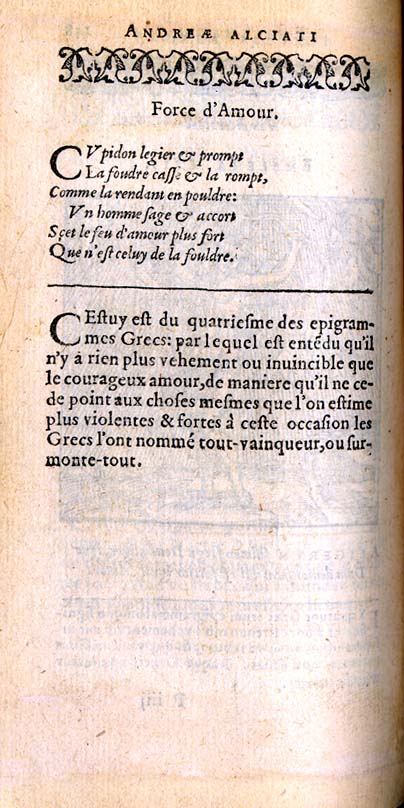 ANDREÆ ALCIATI
Force d'Amour.
CVpidon legier & prompt
La foudre casse & la rompt,
Comme la rendant en pouldre:
Vn homme sage & accort
Sçet le feu d'amour plus fort
Que n'est celuy de la fouldre.
CEstuy est du quatriesme des epigram-
mes Grecs: par lequel est entẽdu qu'il
n'y à rien plus vehement ou inuincible que
le courageux amour, de maniere qu'il ne ce-
de point aux choses mesmes que l'on estime
plus violentes & fortes à ceste occasion les
Grecs l'ont nommé tout-vainqueur, ou sur-
monte-tout.